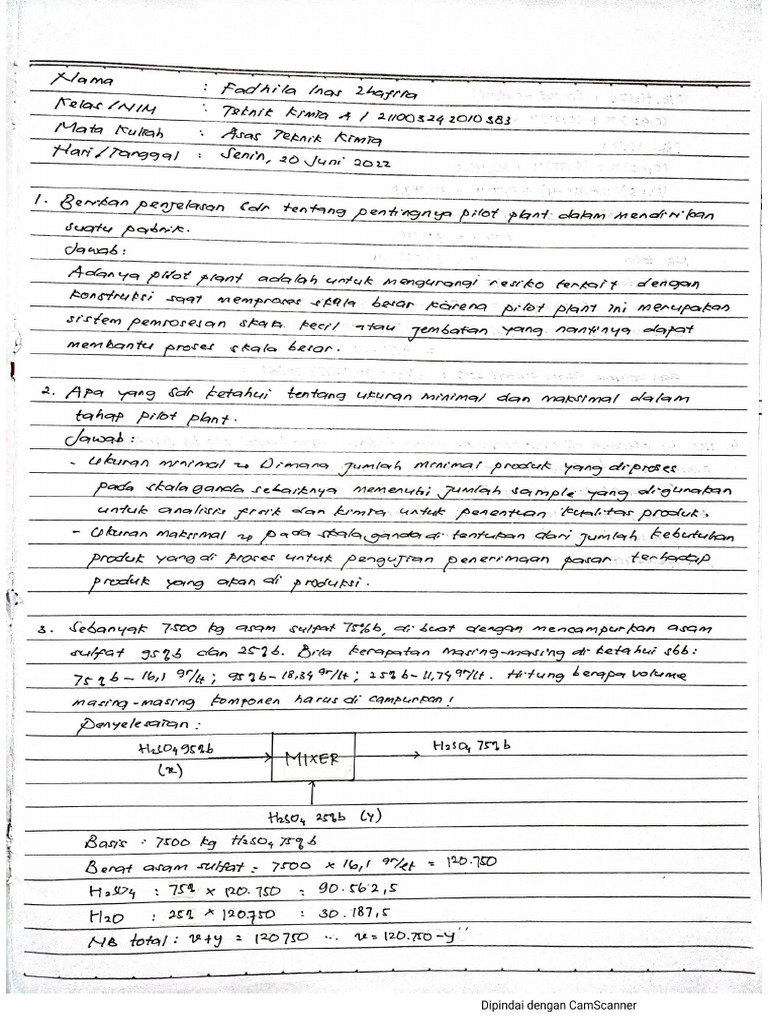 Nama : Fadhila Inas Zhafira
Kelas/NIM : Teknik Kimia A / 21100324 2010383
Mata Kuliah : Asas Teknik Kimia
Hari/Tanggal : Senin, 20 Juni 2022
1. Berikan penjelasan Sdr tentang pentingnya pilot plant dalam mendirikan
suatu pabrik.
Jawab:
Adanya pilot plant adalah untuk mengurangi resiko terkait dengan
konstruksi saat memproses skala besar karena pilot plant ini merupakan
sistem pemrosesan skala kecil atau jembatan yang nantinya dapat
membantu proses skala besar.
2. Apa yang Sdr ketahui tentang ukuran minimal dan maksimal dalam
tahap pilot plant.
Jawab:
- Ukuran minimal → Dimana jumlah minimal produk yang diproses
pada skala ganda sebaiknya memenuhi jumlah sample yang digunakan
untuk analisis fisik dan kimia untuk penentuan kualitas produk.
- Ukuran maksimal → pada skala ganda di tentukan dari jumlah kebutuhan
produk yang di proses untuk pengujian penerimaan pasar terhadap
produk yang akan di produksi.
3. Sebanyak 7500 kg asam sulfat 75%b, di buat dengan mencampurkan asam
sulfat 95%b dan 25%b. Bila kerapatan masing-masing di ketahui sbb:
75%b - 16,1 gr/lt ; 95%b - 18,34 gr/lt ; 25%b - 11,74 gr/lt. Hitung berapa volume
masing-masing komponen harus di campurkan!
Penyelesaian :
H2SO4 95%b
(x)
MIXER
H2SO4 75%b
H2SO4 25%b (y)
Basis : 7500 kg H2SO4 75%b
Berat asam sulfat = 7500 x 16,1 gr/lt = 120.750
H2SO4 : 75% x 120.750 : 90.562,5
H2O : 25% x 120.750 : 30.187,5
NB total : x+y = 120750 ... x = 120.750-y"
Dipindai dengan CamScanner